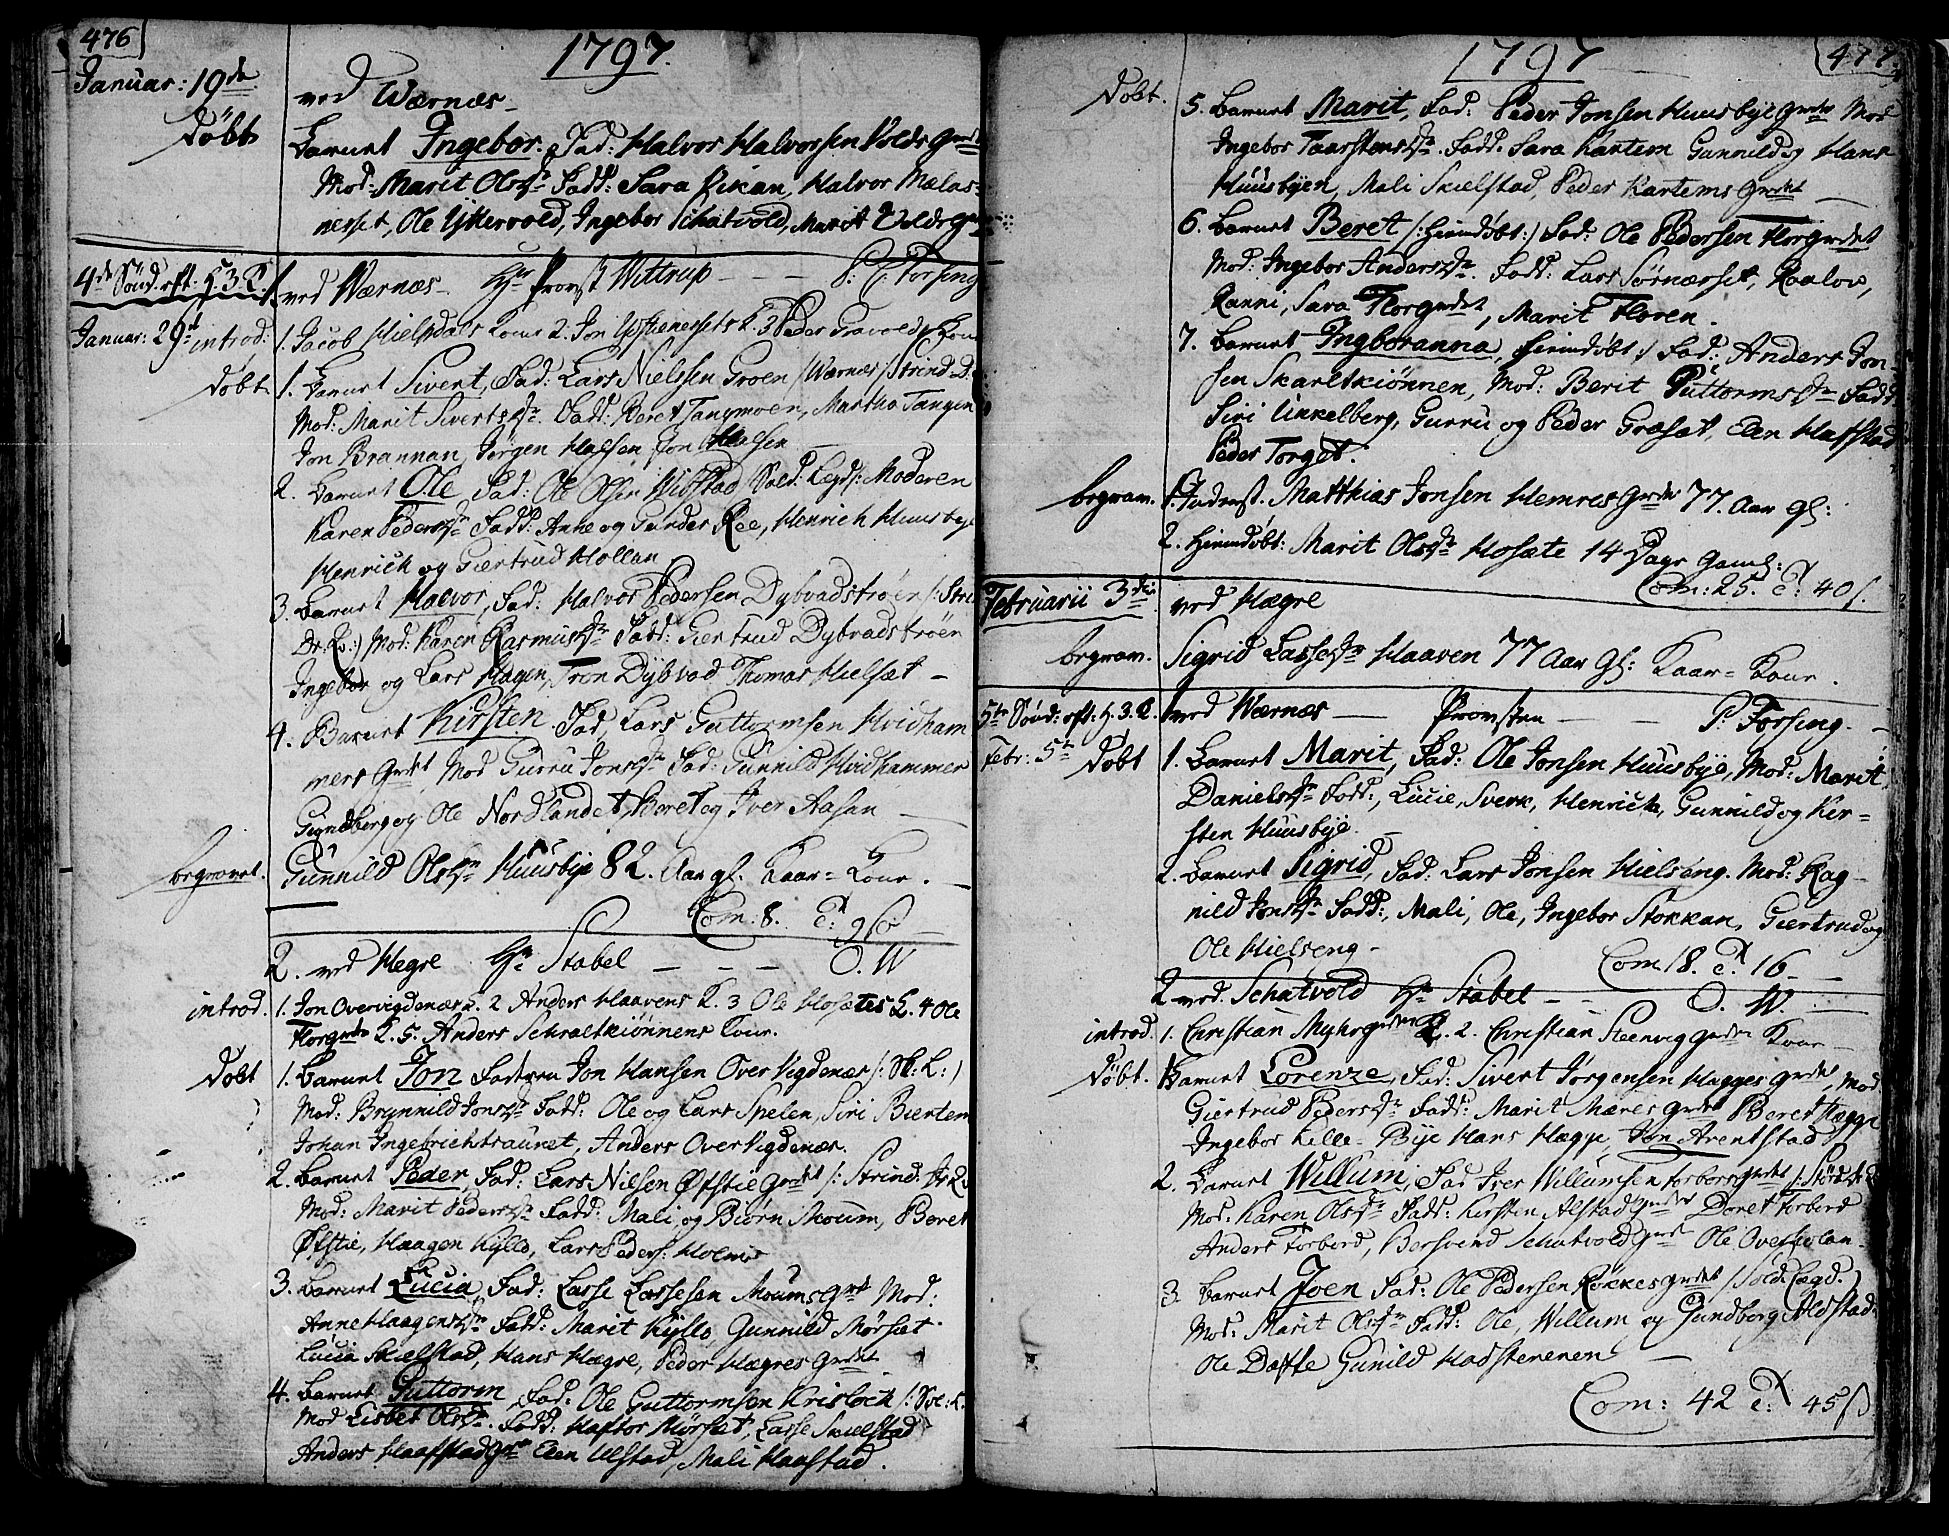 476
1797.
Januar: 19de
ved Wærnæs
Døbt
Barnet Ingebor. Fad: Halvor Halvorssen Volds Grd
Mod: Marit Olsdr Fadd: Sara Rikan, Halvor Mælas=
nesset, Ole Yttervold, Ingebor Schatvold, Marit Volds
4de Sönd. eft. H.3.K.
ved Wærnæs Hr Provst Wittrup - - - P. Forsing
Januar: 29de introd:
1. Jacob Hielsdals Kone 2. Jon K. 3 Peder Kone
Døbt
1. Barnet Sivert, Fad: Lars Nielsen Groen /Wærnæs/ Strind. D.
Mod: Marit Sivertsdr. Fadd: Beret Tangmoen, Martha Tangen
Jon Brannan, Jørgen Halsen Jon Halsen
2. Barnet Ole, Fad: Ole Olsen Sold: Legd: Moderen
Karen Pedersdr Fadd: Anne og Gunder Ree, Henrich Huusbye
Henrich og Giertrud Hollan
3. Barnet Halvor, Fad: Halvor Pedersen Dybvadstrøen /: Strin
Dr. L:) Mod: Karen Rasmusdr Fadd: Giertrud Dybvadstrøen
Ingebor og Lars Hagen, Tron Dybvad Thomas Hielset -
4. Barnet Kirsten Fad, Lars Guttormsen Hvidham
mers Grdet Mod Gurru Jonsdr Fad: Gunnild Hvidhammer
Gundberg og Ole Nordlandet, Beret og Iver Aasan
begravet.
Gunnild Olsdr Huusbye 82. Aar gl. Kaar= Kone.
Com: 8.
2. ved Hegre Hr Stabel - - - O. W
introd.
1. Jon Overvigdenæs K. 2 Anders Haavens K. 3 Ole Hosætes K. 4 Ole
Florgrdes K. 5. Anders Schraltkiønnens Kone.
Døbt
1. Barnet Jon Faderen Jon Hansen Over Vigdenæs /: Sk: L:)
Mod: Brynnild Jonsdr Fadd: Ole og Lars Spelen, Siri Biertem
Johan Ingebrichtraunet, Anders Over Vigdenæs.
2. Barnet Peder Fad: Lars Nielsen Øfstie Grdet /: Strind: Dr L
Mod: Marit Pedersdr Fadd: Mali og Biørn Moum, Beret
Øfstie, Haagen Kyllo, Lars Peders: Holmo
3. Barnet Lucia, Fad: Lasse Lassesen Moums Grdet Mod:
Anne Haagensdr Fadd: Marit Kyllo, Gunnild Mørset
Lucia Skielstad, Hans Hægre, Peder Hægres Grdet
4. Barnet Guttorm Fad: Ole Guttormsen Krislock /: Sol: L.
Mod Lisbet Olsdr. Fadd: Haftor Mørset, Lasse Skielstad
Anders Haafstad Grdet Elen Ulstad, Mali Haafstad.
1797
477.
Døbt.
5. Barnet Marit, Fad: Peder Jonsen Huusbye Grdet Mod
Ingebor Taarstensdr. Fadd. Sara Kartem Gunnild og Hans
Huusbyen, Mali Skielstad, Peder Kartems Grdet
6. Barnet Beret /: Hiemdøbt:/ Fad: Ole Pedersen Florgrdet
Mod: Ingebor Andersdr. Fadd: Lars Sørnæsset, Raalov,
Ranni, Sara Florgrdet, Marit Floren.
7. Barnet Ingboranna, Hiemdøbt:/ Fad: Anders Jon-
sen Skarltkiønnen, Mod: Berit Guttormsdr Fadd
Siri Unkelberg, Gurru og Peder Græset, Elen Haffstad
Peder Torget.
begrav.
1. Inderst. Matthias Jonsen Hemres Grdet 77. Aar gl:
2. Hiemdøbt: Marit Olsdr Hosæte 14 Dage Gaml:
Com: 25. 40 s.
Februarii 3die
ved Hægre
begrav.
Sigrid Lassedr Haaven 77 Aar gl: Kaar= Kone.
5te Sönd: eft: H. 3. K.
ved Wærnæs - Provsten - - P. Forsing.
Febr: 5te Døbt
1. Barnet Marit, Fad: Ole Jonsen Huusbye, Mod: Marit
Danielsdr Fadd:, Lucie, Sverk, Henrich, Gunnild og Ker=
sten Huusbye.
2. Barnet Sigrid, Fad. Lars Jonsen Hielseng. Mod: Rag-
nild Jonsdr Fadd:, Mali, Ole, Ingebor Stokkan, Giertrud og
Ole Hielseng -
Com 18. 16.
2 ved. Schatvold Hr Stabel - - O. W.
introd.
1. Christian Myhrgrden K. 2. Christian Steenvig Grden Kone
Døbt.
1. Barnet Lorentze, Fad: Sivert Jørgensen Hagges Grdet, Mod
Giertrud Pedersdr Fadd: Marit Mæres Grdet Beret Hægge
Ingebor Lille-Bye Hans Hægge, Jon Arentstad
2. Barnet Willum, Fad Iver Willumsen Forbors Grdet /: Stördal
Mod. Karen Olsdr Fadd: Kirsten Alstad Grdet Doret Forbord
Anders Forbord, Bersvend Schatvold Grdet Ole
3. Barnet Joen Fad: Ole Pedersen Røkkes Grdet /: Sold: Legd.
Mod: Marit Olsdr Fadd: Ole, Willum og Gundberg Aldstad
Ole Gunild
Com: 42 45 s